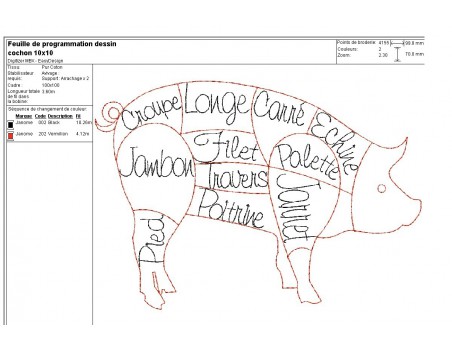 Feuille de programmation dessin
cochon 10x10
Digitizer MBX - EasyDesign
Points de broderie: 4195
99.8 mm
Couleurs: 2
Zoom: 2.36
70.8 mm
Tissu: Pur Coton
Stabilisateur: Aevage
requis: Support: Arrachage x 2
Cadre: 100x100
Longueur totale: 3.60m
de fil dans
la bobine:
Séquence de changement de couleur:
Marque Code Description Fil
Janome 002 Black 10.26m
Janome 202 Vermilion 4.12m
Croupe
Longe
Carré
Echine
Jambon
Filet
Palette
Travers
Poitrine
Jarret
Pied